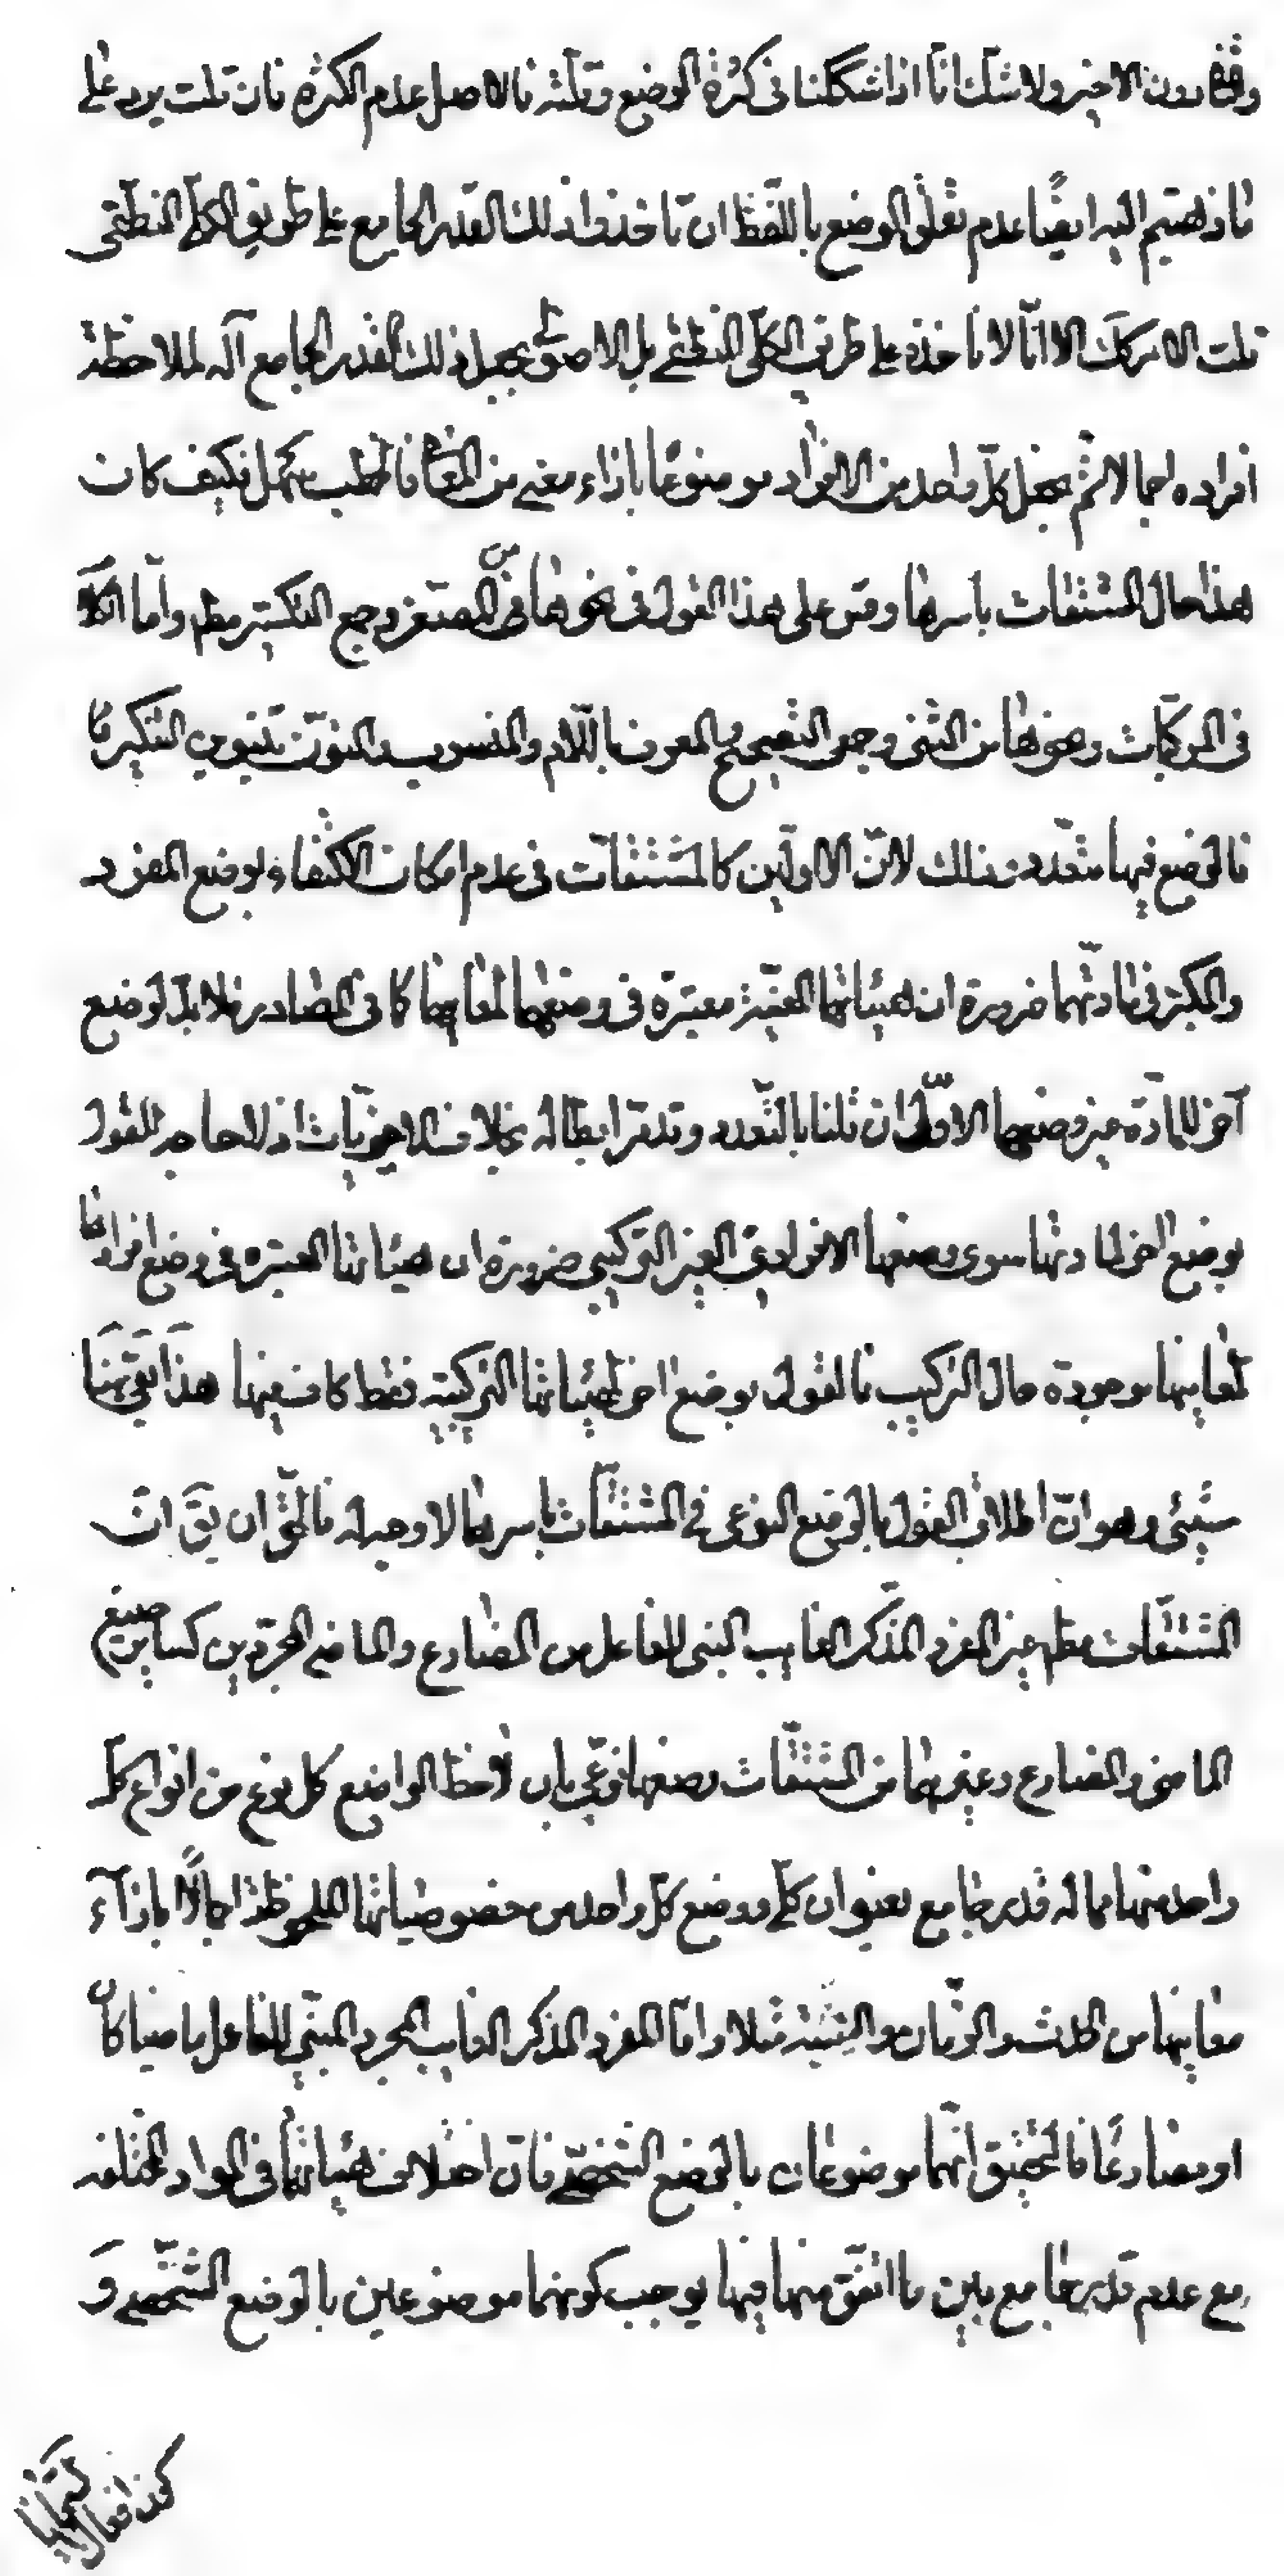 دون الاخير ولا شك انا اذا شككنا فى كثرة الوضع وقلته فالاصل عدم الكثرة فان قلت يرد على
ما ذهبتم اليه ايضًا عدم تعلّق الوضع باللّفظ ان تاخذوا ذلك القدر الجامع على طريق الكلّى المنطقى
قلت الامر كك الا انّا لا ناخذه على طريق الكلّى المنطقى بل الاصولى بجعل ذلك القدر الجامع آلة لملاحظة
افراده اجمالا ثم يجعل كلّ واحد من الافراد موضوعًا بازاء معنى من المعانى فالمطلب سهل فكيف كان
هذا حال المشتقات باسرها وقس على هذا القول فى نحوها من المصغر وجمع التكسير مطلقا وامّا الكلام
فى المركبات ونحوها من المثنى وجمعى التصحيح والمعرف باللّام والمنسوب والمنوّن بتنوين التنكير
فالوضع فيها متعدد وذلك لانّ الاولين كالمشتقات فى عدم امكان الاكتفاء بوضع المفرد
والمكبر فى مادّتهما ضرورة ان هيئاتهما المعيّنة معتبرة فى وضعهما لمعانيهما كما فى المصادر فلا بدّ لوضع
آخر للمادّة غير وضعهما الاوّلى ان قلنا بالتعدد وقد مرّ ابطاله بخلاف الاخيريات اذ لا حاجة للقول
بوضع اخر لمادتها سوى وضعها الافرادى الغير التركيبى ضرورة ان هيئاتها المعتبرة فى وضع افرادها
لمعانيها موجودة حال التركيب فالقول بوضع اخر لهيئاتها التركيبية فقط كاف فيها هذا بقى هنا
شيئى وهو انّ اطلاق القول بالوضع النوعى فى المشتقات باسرها لا وجه له فالحق ان يق انّ
المشتقات مطلقا غير المفرد المذكر الغايب المبنى للفاعل من المضارع والماضى المجرّدين كساير صيغ
الماضى والمضارع وغيرهما من المشتقّات وضعها نوعى بان لاحظ الواضع كل نوع من انواع كلّ
واحد منها مما له قدر جامع بعنوان كلّى ووضع كلّ واحد من خصوصياتها الملحوظة اجمالًا بازآء
معانيها من الحدث والزمان والنسبة مثلا وامّا المفرد المذكر الغايب المجرد المبنى للفاعل ماضيا كان
او مضارعًا فالتحقيق انّهما موضوعان بالوضع الشخصى فانّ اختلاف هيئاتها فى المواد المختلفة
مع عدم قدر جامع بين ما اتفق منها فيها يوجب كونهما موضوعين بالوضع الشخصى و